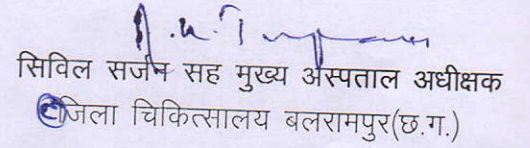 सिविल सर्जन सह मुख्य अस्पताल अधीक्षक
जिला चिकित्सालय बलरामपुर(छ.ग.)